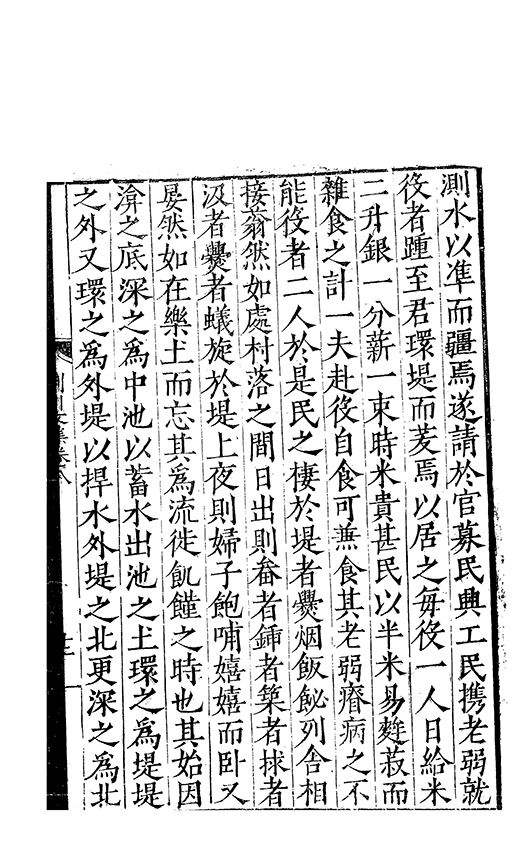 測水以準而疆焉遂請於官募民興工民携老弱就
役者踵至君環堤而茇焉以居之每役一人日給米
二升銀一分薪一束時米貴甚民以半米易麰菽而
雜食之計一夫赴役自食可兼食其老弱瘠病之不
能役者二人於是民之棲於堤者爨烟飯飶列舎相
接翕然如處村落之間日出則畚者鍤者築者捄者
汲者爨者蟻旋於堤上夜則婦子飽哺嬉嬉而卧又
晏然如在樂土而忘其為流徙飢饉之時也其始因
渰之底深之為中池以蓄水出池之土環之為堤堤
之外又環之為外堤以捍水外堤之北更深之為北